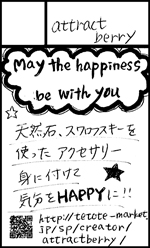 attract
berry
May the happiness
be with you
天然石、スワロフスキーを
使った アクセサリー
身に付けて
気分をHAPPYに!!
http://tetote-market.
jp/sp/creator/
attractberry/